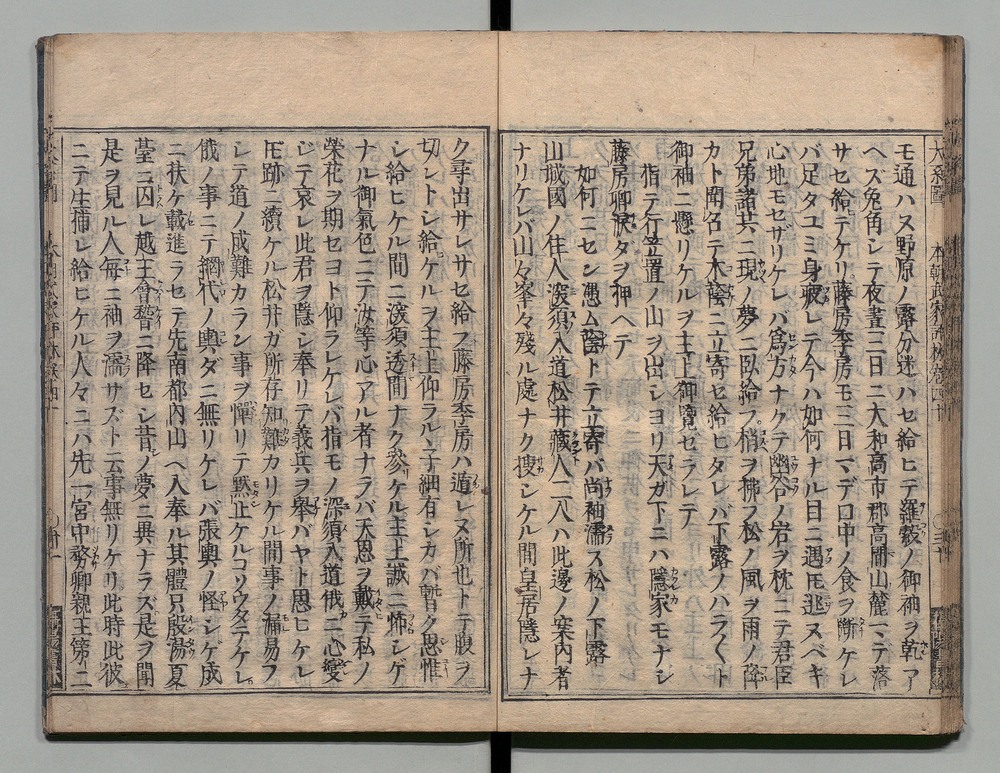 モ通ハス野原ノ露分迷ハセ給ヒテ羅縠ノ御袖ヲ乾ア
ヘズ兔角シテ夜晝三日ニ大和高市郡高間山麓マデ落
サセ給テケリ藤房季房モ三日マデ口中ノ食ヲ断ケレ
バ足タユミ身疲レテ今ハ如何ナル目ニ遇トモ逃スベキ
心地モセザリケレバ爲方ナクテ幽谷ノ岩ヲ枕ニテ君臣
兄弟諸共ニ現ノ夢ニ臥給フ梢ヲ拂フ松ノ風ヲ雨ノ降
カト聞召テ木蔭ニ立寄セ給ヒタレバ下露ノハラ〱ト
御袖ニ懸リケルヲ主上御覽セラレテ
指テ行笠置ノ山ヲ出シヨリ天ガ下ニハ隱家モナシ
藤房卿涙ヲ押ヘテ
如何ニセン憑ム蔭トテ立寄バ尚袖濡ス松ノ下露
山城國ノ住人深須入道松井藏人二人ハ此邊ノ案内者
ナリケレバ山々峯々殘ル處ナク捜シケル間皇居隱レナ
ク尋出サレサセ給フ藤房季房ハ遁レヌ所也トテ腹ヲ
切ントシ給ケルヲ主上仰ラルヽ子細有シカバ暫ク思惟
シ給ヒケル間ニ深須透間ナク參リケル主上誠ニ怖シゲ
ナル御氣色ニテ汝等心アル者ナラバ天恩ヲ戴テ私ノ
榮花ヲ期セヨト仰ラレケレバ指モノ深須入道俄ニ心變
ジテ哀レ此君ヲ隱シ奉リテ義兵ヲ擧バヤト思ヒケレ
トモ跡ニ續ケル松井ガ所存知難カリケル間事ノ漏易フ
シテ道ノ成難カラン事ヲ憚リテ黙止ケルコソウタテケレ
俄ノ事ニテ網代ノ輿ダニ無リケレバ張輿ノ怪シゲ成
ニ扶ケ載進ラセテ先南都内山ヘ入奉ル其體只殷湯夏
臺ニ囚レ越王會稽ニ降セシ昔ノ夢ニ異ナラズ是ヲ聞
是ヲ見ル人毎ニ袖ヲ濡サズト云事無リケリ此時此彼
ニテ生捕レ給ヒケル人々ニハ先一宮中務卿親王第二